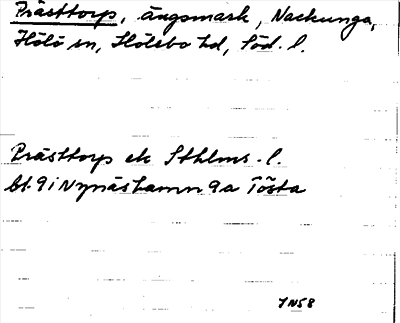 Prästtorp, ängsmark, Nackunga,
Hölö sn, Hölebo hd, Söd. l.
Prästtorp ek Sthlms. l.
bl. 9i Nynäshamn 9a Tösta
JN58